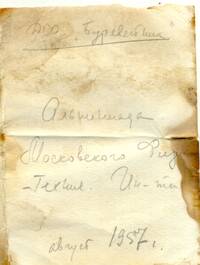 ДСО "Буревестник"
Альпиниада
Московского Физ
-Техн. Ин-та
август 1957 г.